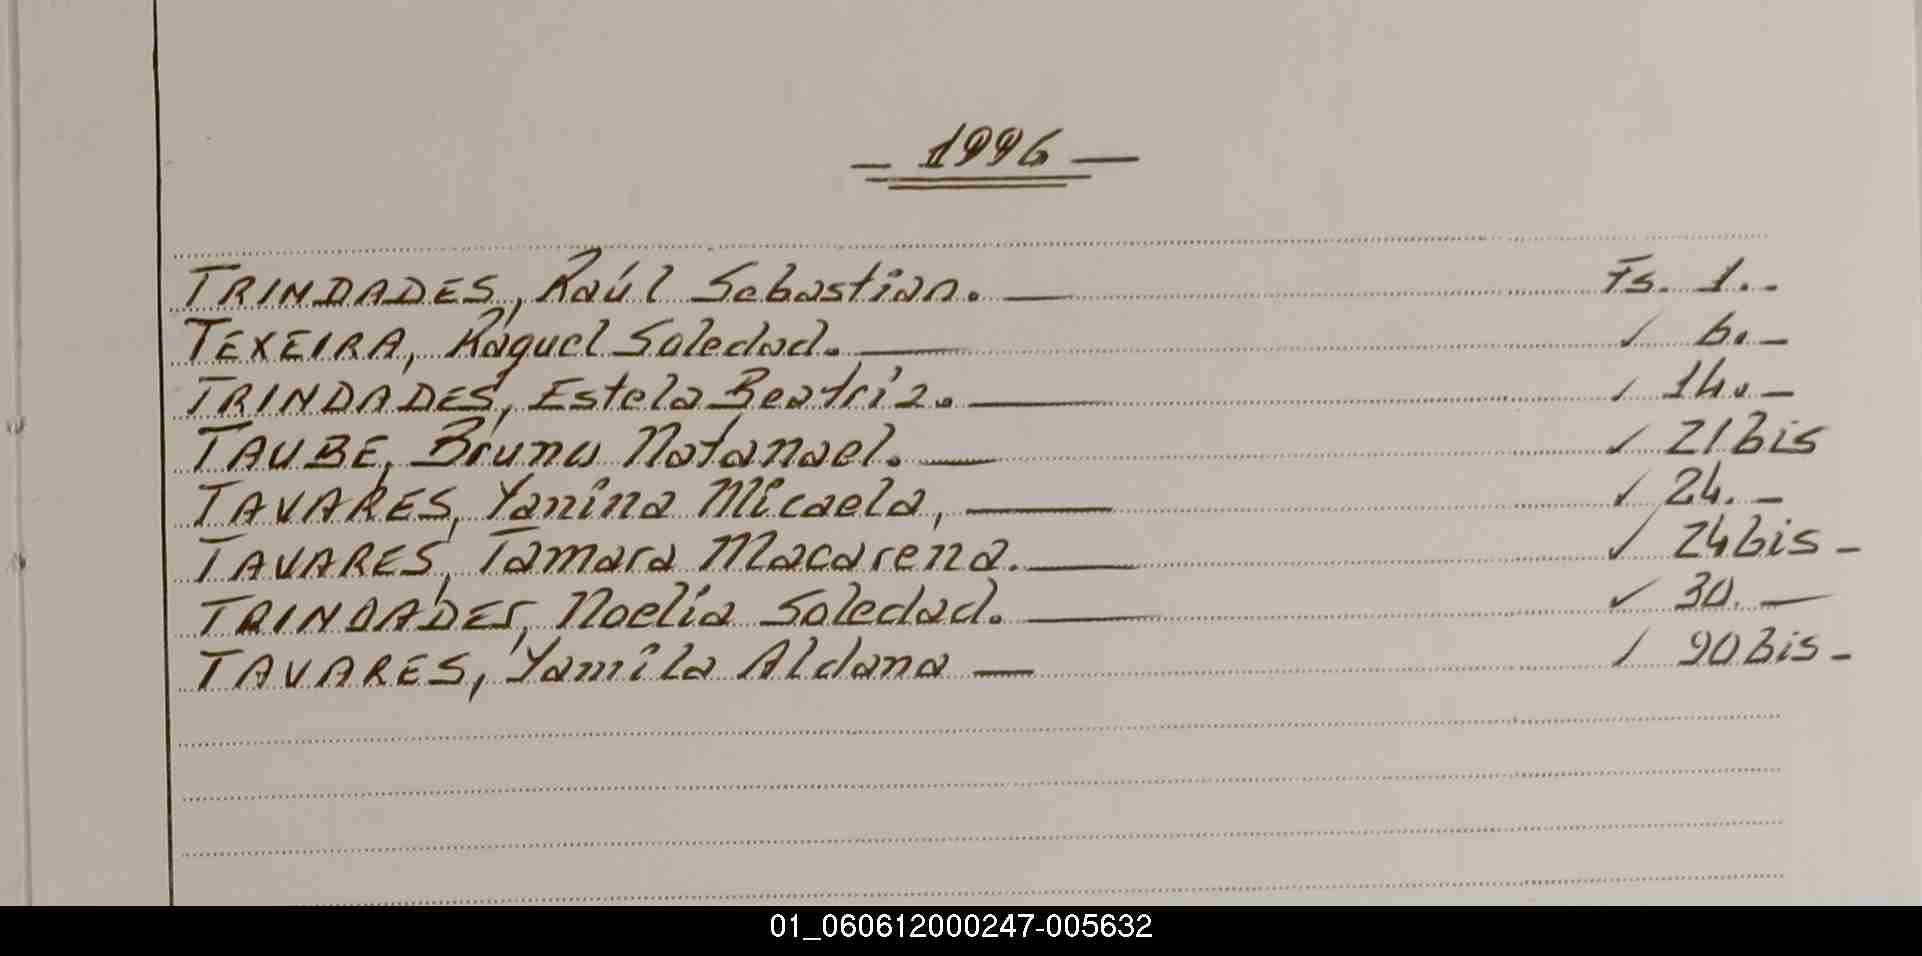 — 1996 —
TRINDADES, Raúl Sebastian. — Fs. 1.-
TEXEIRA, Raquel Soledad. — ✓ 6.-
TRINDADES, Estela Beatriz. — ✓ 14.-
TAUBE, Bruno Natanael. — ✓ 21 bis
TAVARES, Yanina Micaela, — ✓ 24.-
TAVARES, Tamara Macarena. — ✓ 24 bis -
TRINDADES, Noelia Soledad. — ✓ 30. —
TAVARES, Yamila Aldana — ✓ 90 bis -
01_060612000247-005632